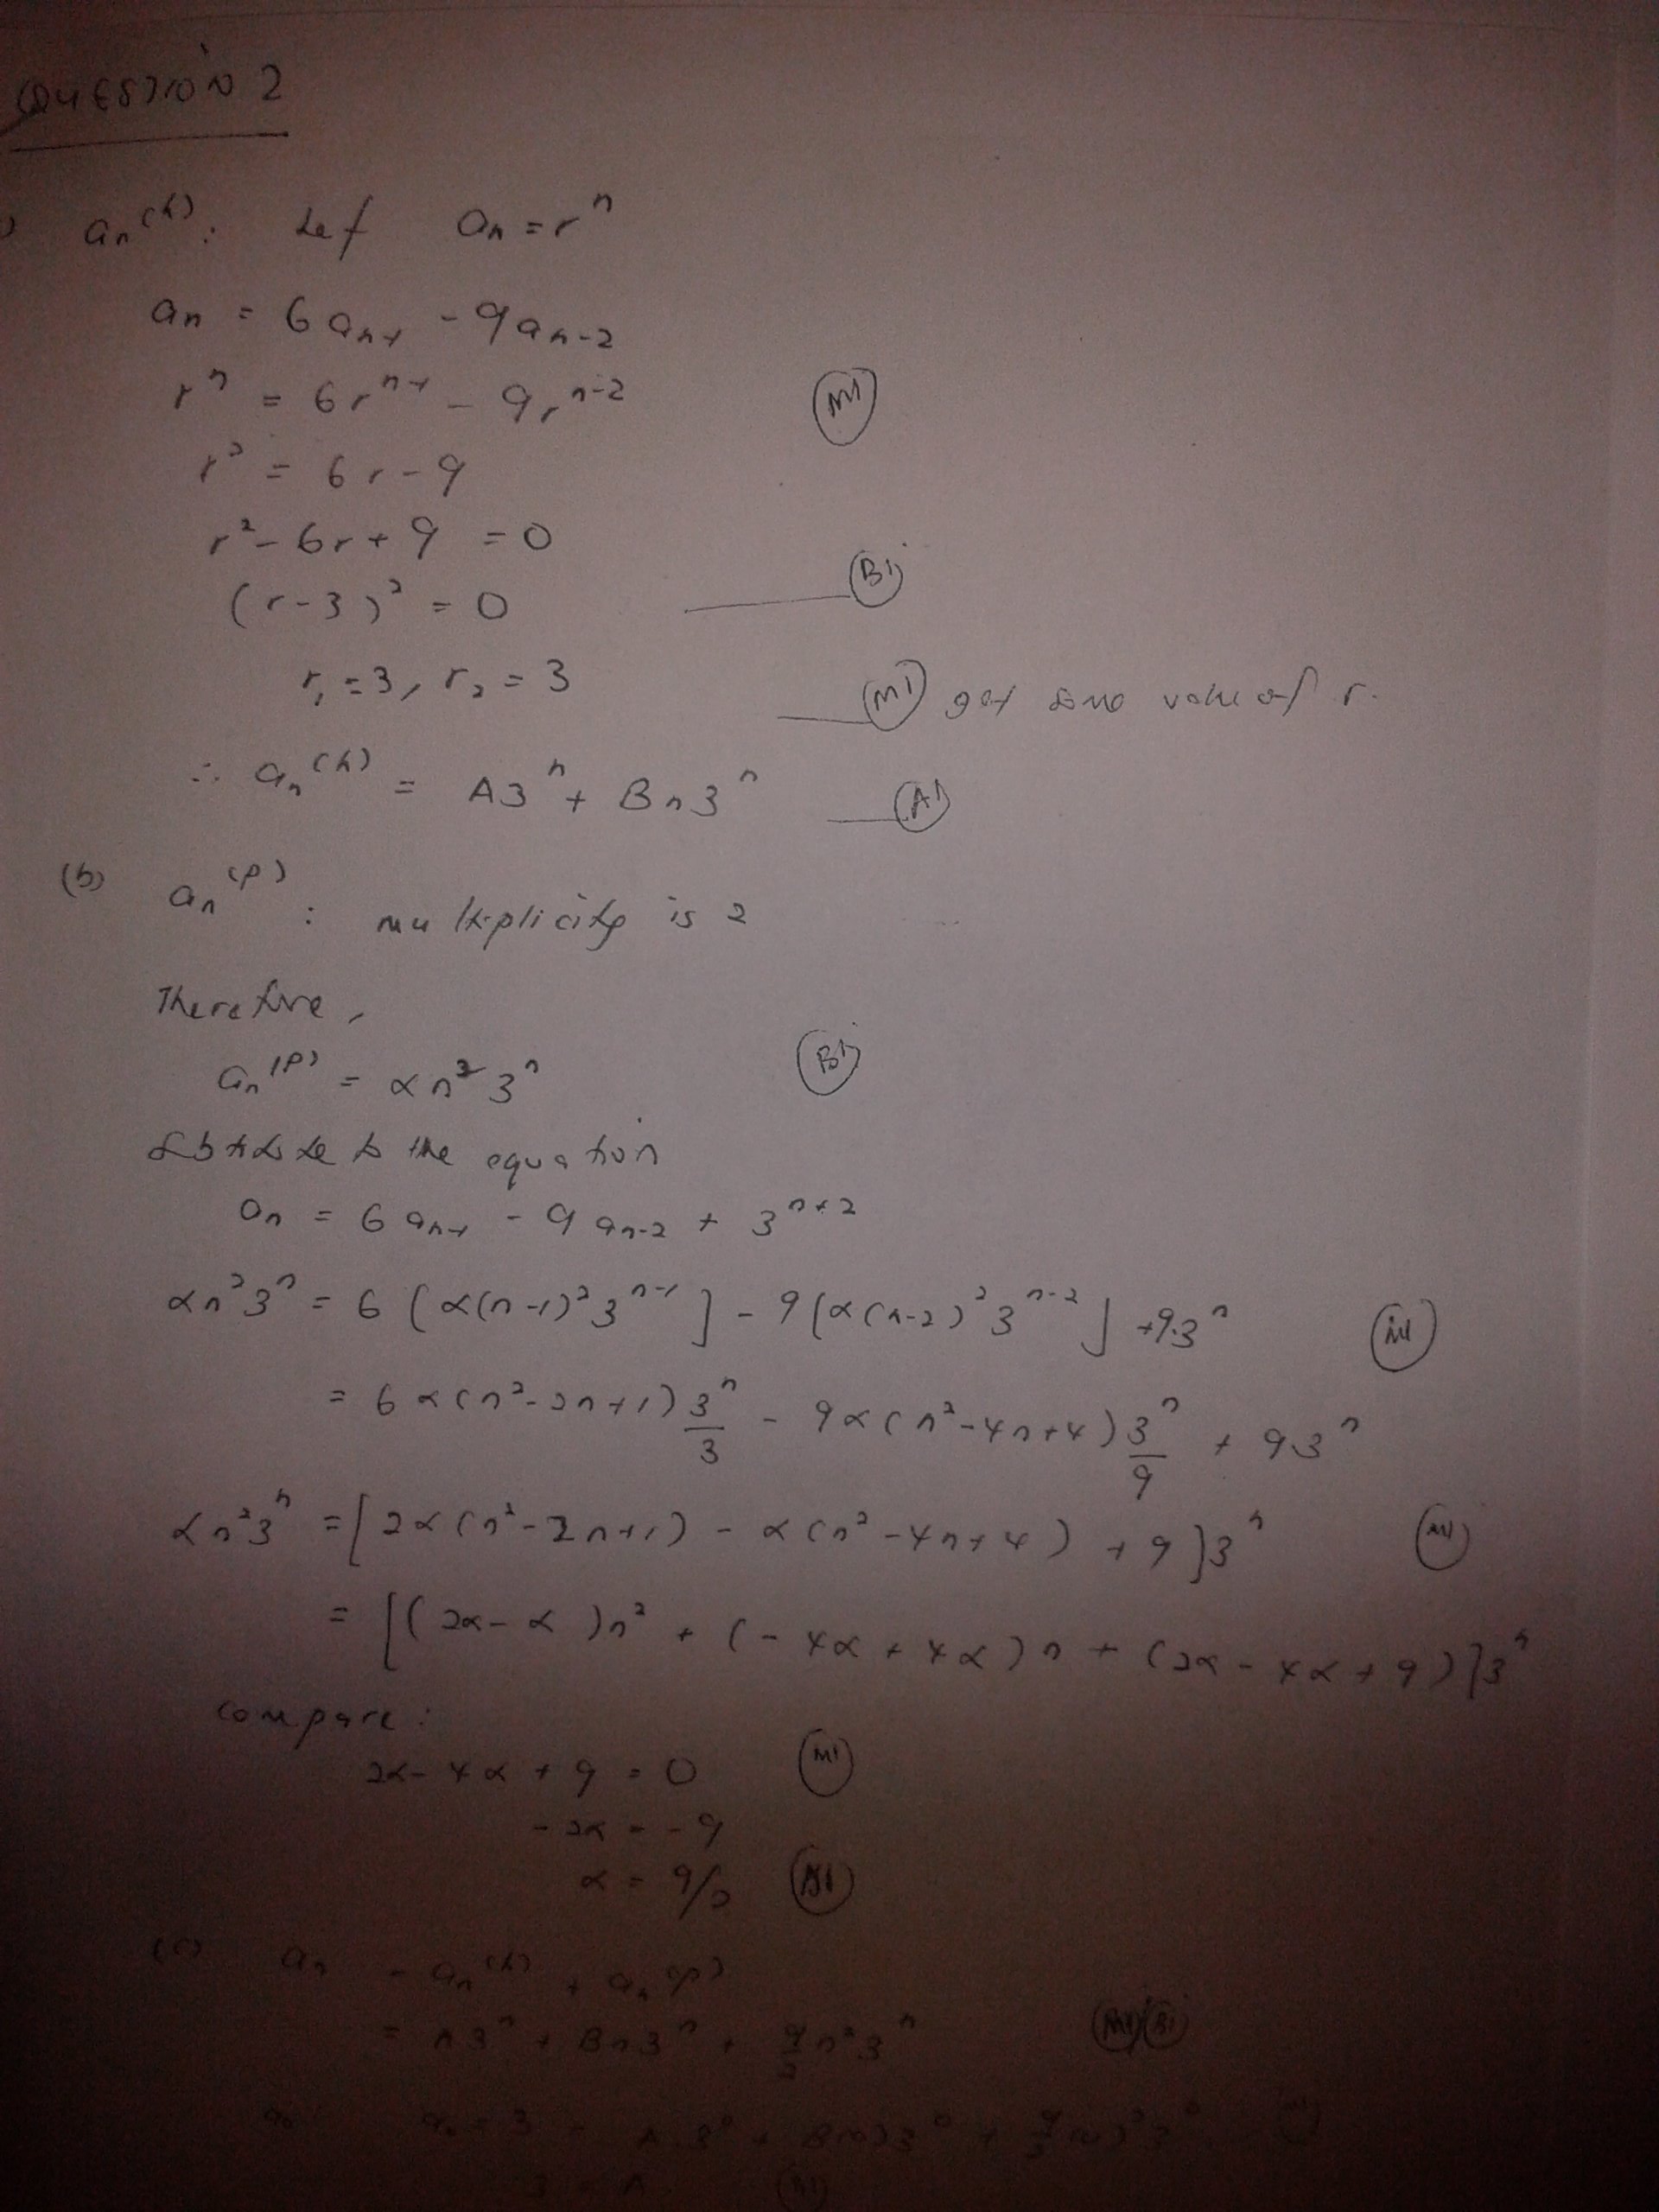 QUESTION 2
) aₙ⁽ʰ⁾: Let aₙ = rⁿ
aₙ = 6aₙ₋₁ - 9aₙ₋₂
rⁿ = 6rⁿ⁻¹ - 9rⁿ⁻² M1
r² = 6r - 9
r² - 6r + 9 = 0
(r-3)² = 0 B1
r₁ = 3, r₂ = 3 M1 get same value of r.
∴ aₙ⁽ʰ⁾ = A3ⁿ + Bn3ⁿ A1
(b) aₙ⁽ᵖ⁾: multiplicity is 2
Therefore,
aₙ⁽ᵖ⁾ = αn²3ⁿ B1
to the equation
aₙ = 6aₙ₋₁ - 9aₙ₋₂ + 3ⁿ⁺²
αn²3ⁿ = 6[α(n-1)²3ⁿ⁻¹] - 9[α(n-2)²3ⁿ⁻²] + 9.3ⁿ M1
= 6α(n²-2n+1)3ⁿ/3 - 9α(n²-4n+4)3ⁿ/9 + 93ⁿ
αn²3ⁿ = [2α(n²-2n+1) - α(n²-4n+4) + 9]3ⁿ M1
= [(2α-α)n² + (-4α+4α)n + (2α-4α+9)]3ⁿ
compare:
2α-4α+9 = 0 M1
-2α = -9
α = 9/2 A1
(c) aₙ = aₙ⁽ʰ⁾ + aₙ⁽ᵖ⁾
= A3ⁿ + Bn3ⁿ + 9/2 n²3ⁿ M1 B1
a₀ = 3 = A.3⁰ + B(0)3⁰ + 9/2(0)²3⁰
3 = A